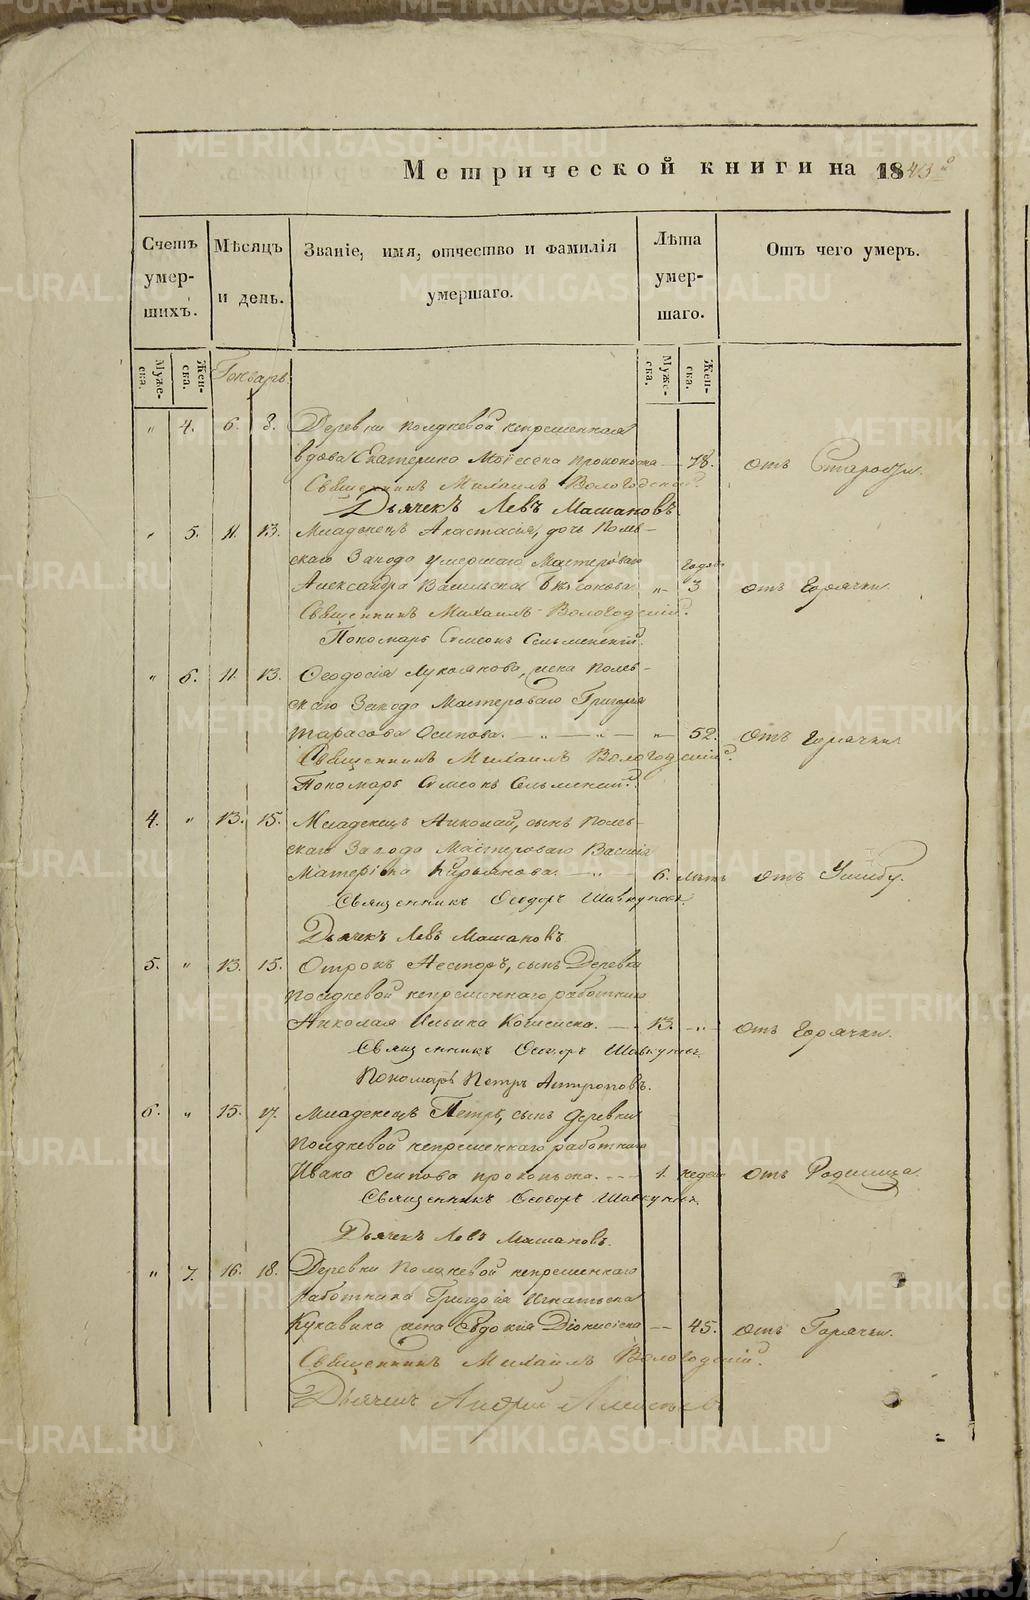 Метрической книги на 1843
Счетъ умер-шихъ.
Мѣсяцъ и день.
Званіе, имя, отчество и фамилія умершаго.
Лѣта умер-шаго.
Отъ чего умеръ.
Муже-ска.
Жен-ска.
Генварь
Муже-ска.
Жен-ска.
" 4. 6. 8. Деревни Полдневой непременная
вдова Екатерина Моисеева Прокопьева — 78. отъ Старости.
Священникъ Михаилъ Вологодскій.
Дьячекъ Левъ Машановъ.
" 5. 11. 13. Младенецъ Анастасья, дочь Полев-
скаго Завода умершаго Мастероваго годов
Александра Васильева " 3 отъ Горячки.
Священникъ Михаилъ Вологодскій.
Пономарь Симеонъ Сельменскій.
" 6. 11. 13. Феодосія Лукоянова, жена Полев-
скаго Завода Мастероваго Григорья
Тарасова Осипова. — " — " — " 52. отъ Горячки
Священникъ Михаилъ Вологодскій.
Пономарь Симеонъ Сельменскій.
4. " 13. 15. Младенецъ Николай, сынъ Полев-
скаго Завода Мастероваго Василія
Кирьянова. — " 6. лѣтъ отъ Ушибу.
Священникъ Феодоръ Шавкуновъ.
Дьячекъ Левъ Машановъ.
5. " 13. 15. Отрокъ Несторъ, сынъ Деревни
Полдневой непременнаго работника
Николая Ильина — 13. — " — отъ Горячки.
Священникъ Феодоръ Шавкуновъ.
Пономарь Петръ Антроповъ.
6. " 15. 17. Младенецъ Петръ, сынъ деревни
Полдневой непременнаго работника
Ивана Осипова Прокопьева. — 1. недел отъ Родимца.
Священникъ Феодоръ Шавкуновъ.
Дьячекъ Левъ Машановъ.
" 7. 16. 18. Деревни Полдневой непременнаго
работника Григорія Игнатьева
Кукавина жена Евдокія Діонисіева — 45. отъ Горячки.
Священникъ Михаилъ Вологодскій.
Дьячекъ Андрей
METRIKI.GASO-URAL.RU